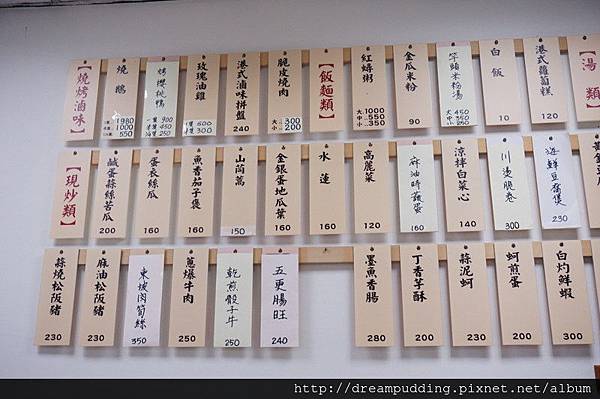 【燒烤滷味】
燒鵝
一隻 1980
半隻 1000
550
烤櫻桃鴨
一隻 900
半隻 450
250
玫瑰油雞
一隻 600
半隻 300
港式滷味拼盤
240
脆皮燒肉
大 300
小 200
【飯麵類】
紅蟳粥
大 1000
中 550
小 350
金瓜米粉
90
芋頭米粉湯
大 450
中 350
小 250
白飯
10
港式蘿蔔糕
120
【湯類】
【現炒類】
鹹蛋蒜絲苦瓜
200
蛋衣絲瓜
160
魚香茄子煲
160
山茼蒿
150
金銀蛋地瓜葉
160
水蓮
160
高麗菜
120
麻油時蔬蛋
160
涼拌白菜心
140
川燙脆卷
300
海鮮豆腐煲
230
蒜燒松阪豬
230
麻油松阪豬
230
東坡肉筍絲
350
蔥爆牛肉
250
乾煎骰子牛
250
五更腸旺
240
墨魚香腸
280
丁香芋酥
200
蒜泥蚵
230
蚵煎蛋
200
白灼鮮蝦
300
http://dreampudding.pixnet.net/album